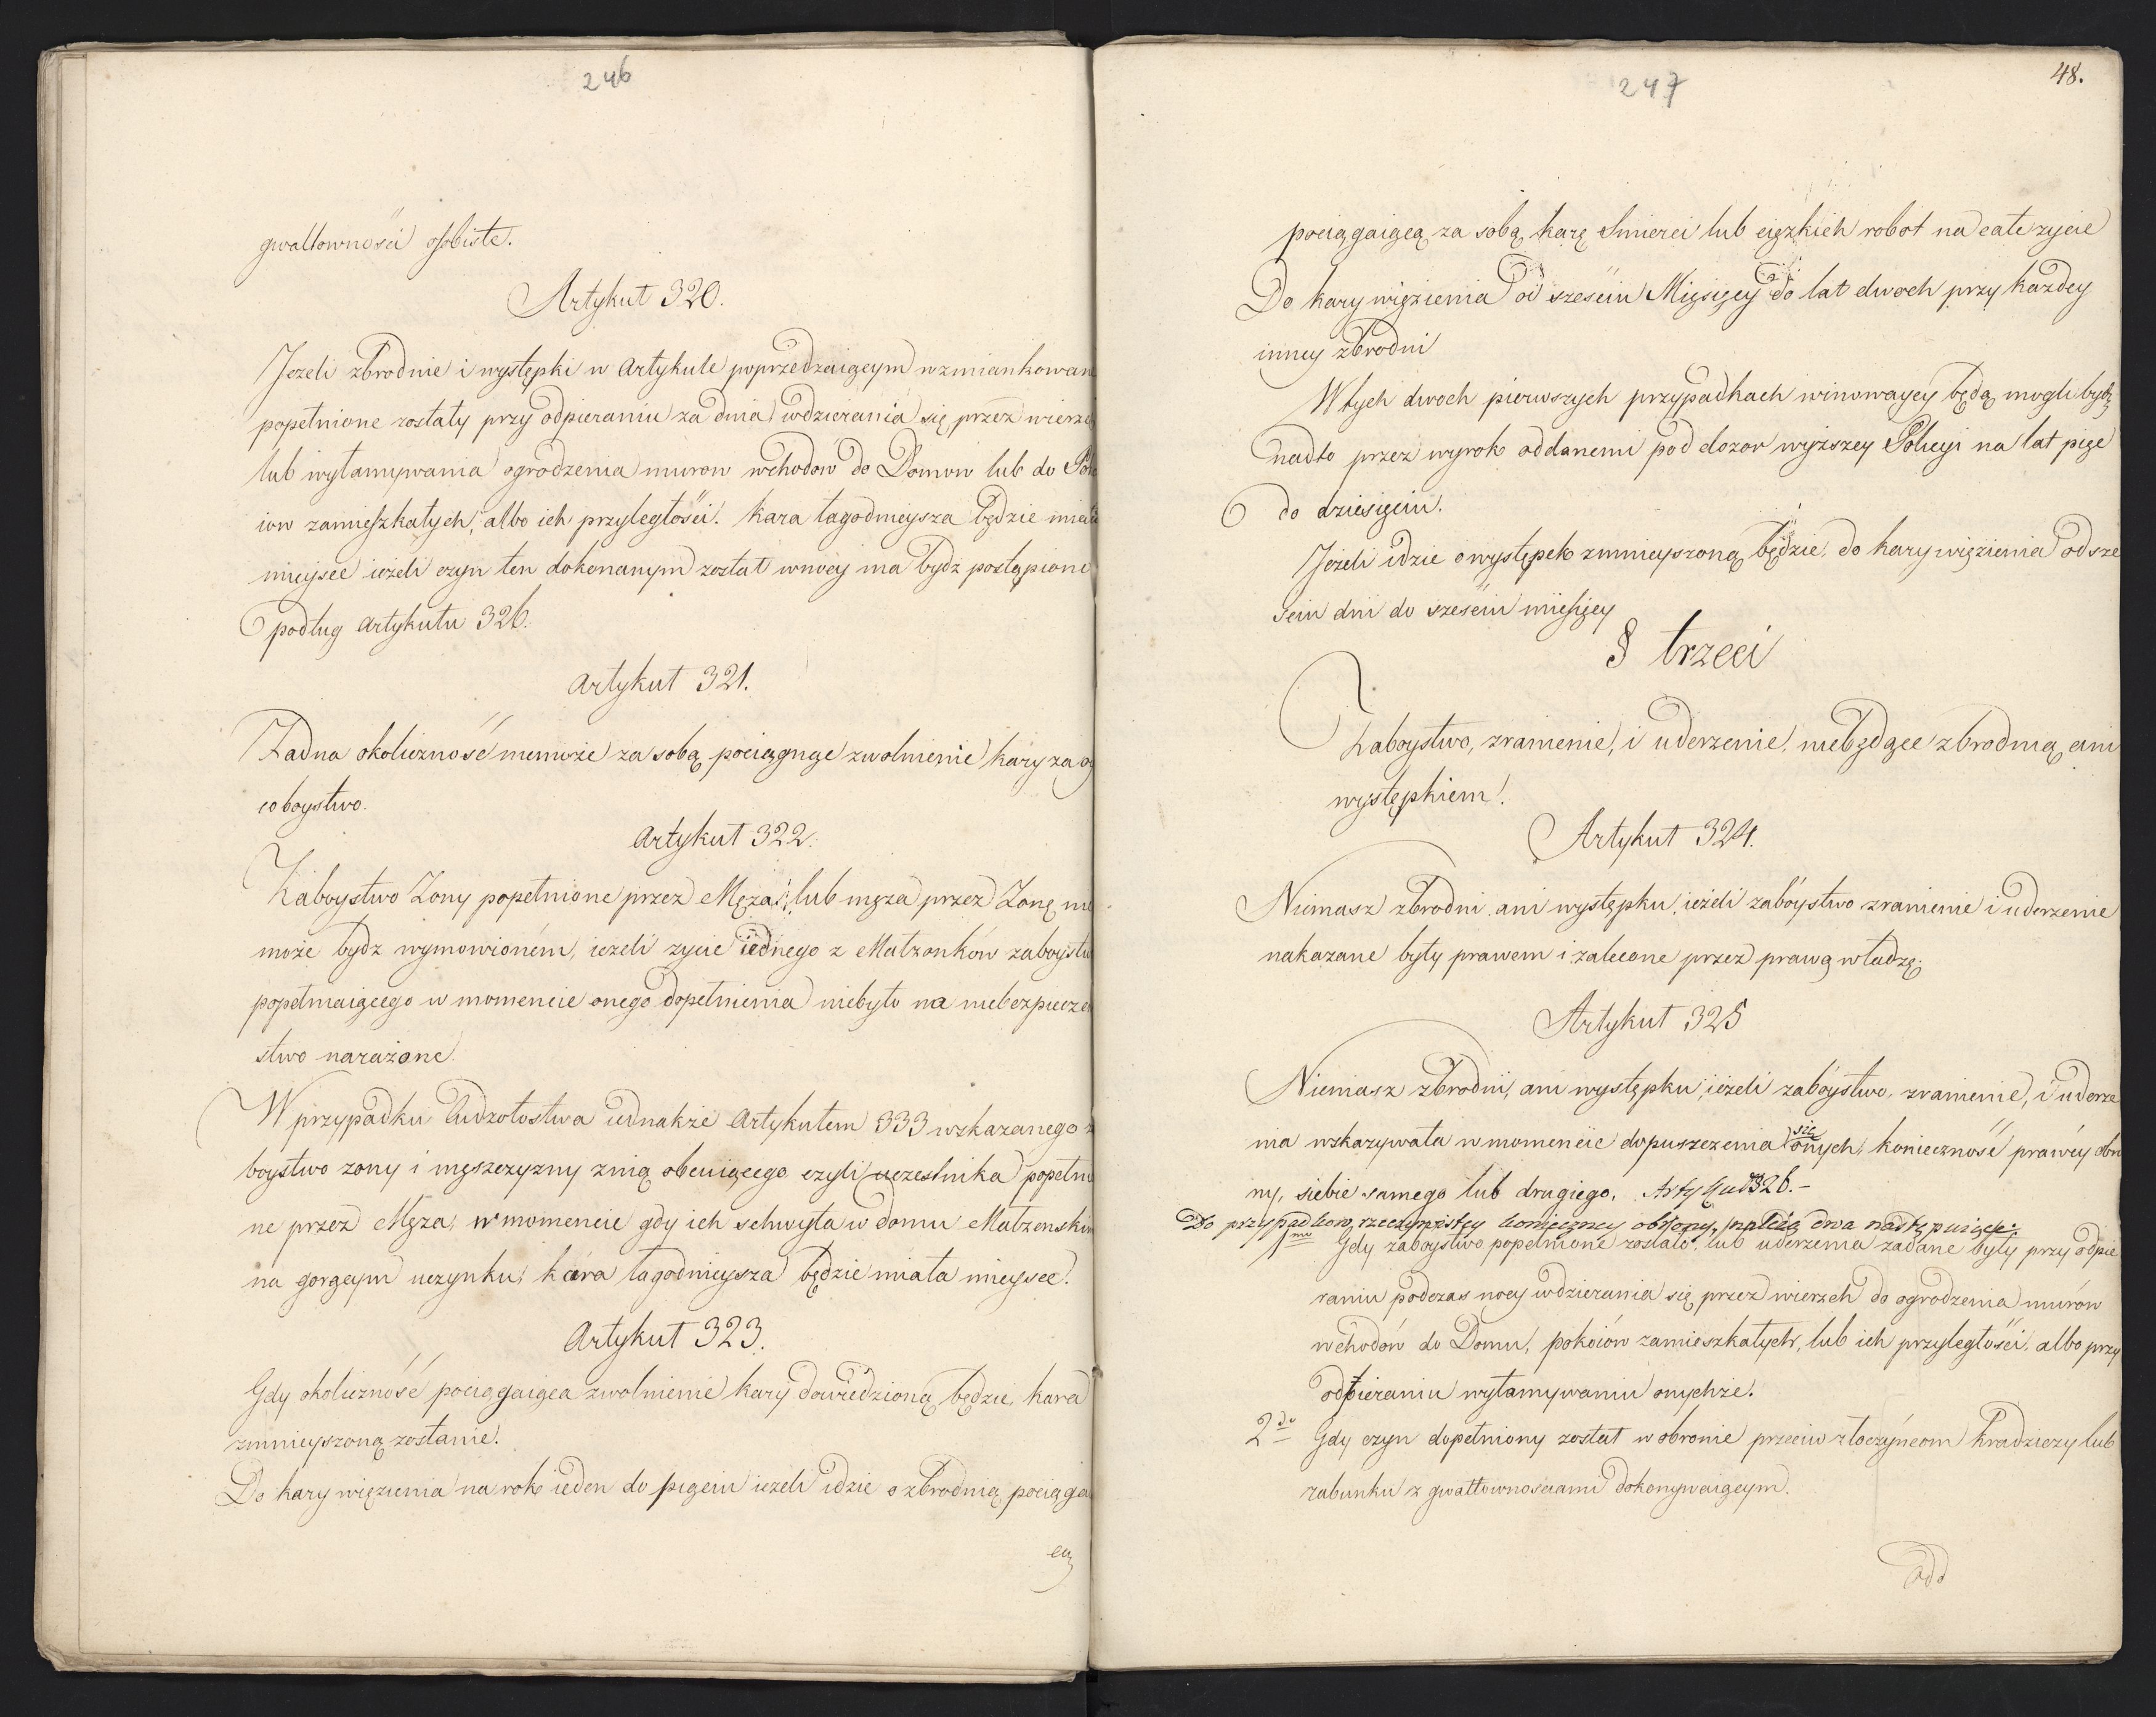 246
gwałtowności osobiste.
Artykuł 320.
Jeżeli zbrodnie i występki w Artykule poprzedzaiącym wzmiankowan
popełnione zostały przy odpieraniu za dnia wdzierania się przez wierzc
lub wyłamywania ogrodzenia murow wchodow do Domow lub do Poko
iow zamieszkałych, albo ich przyległości. kara łagodnieysza będzie miała
mieysce ieżeli czyn ten dokonanym został w nocy ma bydź postąpione
podług Artykułu 326.
Artykuł 321.
Żadna okoliczność niemoże za sobą pociągnąc zwolnienie kary za oy
coboystwo.
Artykuł 322.
Zaboystwo Żony popełnione przez Męża, lub męża przez Żonę nie
może bydź wymowioném, ieżeli zycie iednego z Małżonków zaboystw
popełniaiącego w momencie onego dopełnienia niebyło na niebezpieczeń
stwo narażone.
W przypadku Cudzołostwa iednakże Artykułem 333 wskazanego z
boystwo żony i męszczyzny znią obcuiącego czyli uczestnika popełnio
ne przez Męża, w momencie gdy ich schwyta w domu Małżenskim
na gorącym uczynku, kara łagodnieysza będzie miała mieysce.
Artykuł 323.
Gdy okoliczność pociągaiąca zwolnienie kary dowiedzioną będzie, kara
zmnieyszoną zostanie.
Do kary więzienia na rok ieden do pięciu ieżeli idzie o zbrodnią pociąga
cą
247
48.
pociągaiącą za sobą karę Smierci lub ciężkich robot na całe życie
Do kary więzienia od szesciu Miesięcy do lat dwoch przy każdey
inney zbrodni
W tych dwoch pierwszych przypadkach winowaycy będą mogli bydź
nadto przez wyrok oddanemi pod dozor wyższey Policyi na lat pięc
do dziesięciu.
Jeżeli idzie o występek zmnieyszoną będzie do kary więzienia od sze
sciu dni do szesciu miesięcy
§ trzeci
Zaboystwo, zranienie, i uderzenie, niebędące zbrodnią, ani
występkiem.
Artykuł 324.
Niemasz zbrodni ani występku, ieżeli zaboystwo zranienie i uderzenie
nakazane były prawem i zalecone przez prawą władzę.
Artykuł 325
Niemasz zbrodni, ani występku, ieżeli zaboystwo, zranienie, i uderze
nia wskazywała w momencie dopuszczenia się onych, konieczność prawéy obro
ny, siebie samego lub drugiego. Artykuł 326.-
Do przypadkow, rzeczywistey konieczney obrony, należą dwa następuiące:
1mo Gdy zaboystwo popełnione zostało, lub uderzenia zadane były przy odpie
raniu podczas nocy wdzierania się przez wierzch do ogrodzenia murów
wchodów do Domu, pokoiów zamieszkałych, lub ich przyległości, albo przy
odpieraniu wyłamywaniu onychże.
2do Gdy czyn dopełniony został w obronie przeciw złoczyńcom kradzieży lub
rabunku z gwałtownosciami dokonywaiącym.